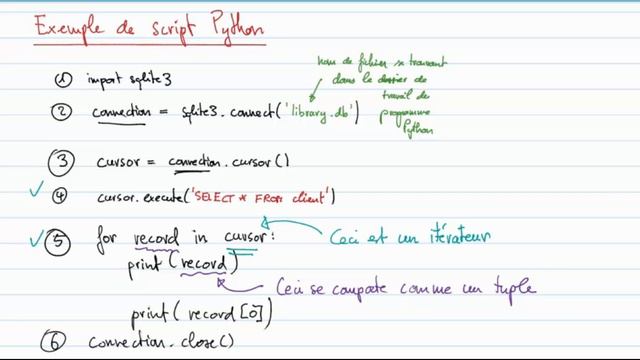 Exemple de script Python
① import sqlite3
② connection = sqlite3.connect('library.db')
nom de fichier se trouvant
dans le dossier de
travail du
programme
Python
③ cursor = connection.cursor()
④ cursor.execute('SELECT * FROM client')
⑤ for record in cursor:
Ceci est un itérateur
print(record)
Ceci se comporte comme un tuple
print(record[0])
⑥ connection.close()